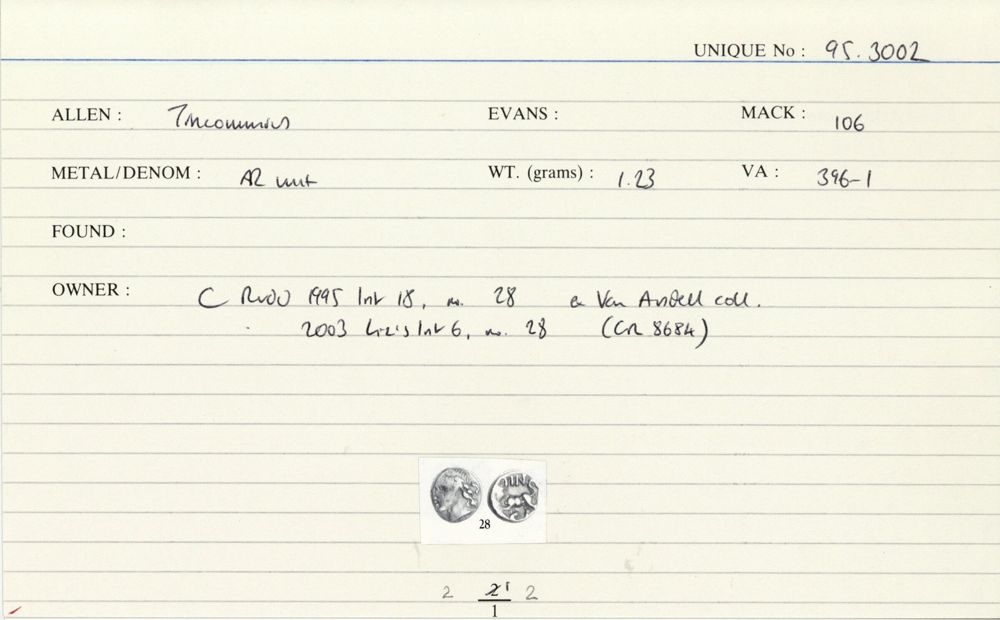 UNIQUE No : 95.3002
ALLEN : Tincommius EVANS : MACK : 106
METAL/DENOM : AR unit WT. (grams) : 1.23 VA : 396-1
FOUND :
OWNER : C Rudd 1995 list 18, no. 28 ex Van Arsdell coll.
2003 Liz's list 6, no. 28 (CR 8684)
TINC
28
2 2 1 2
1